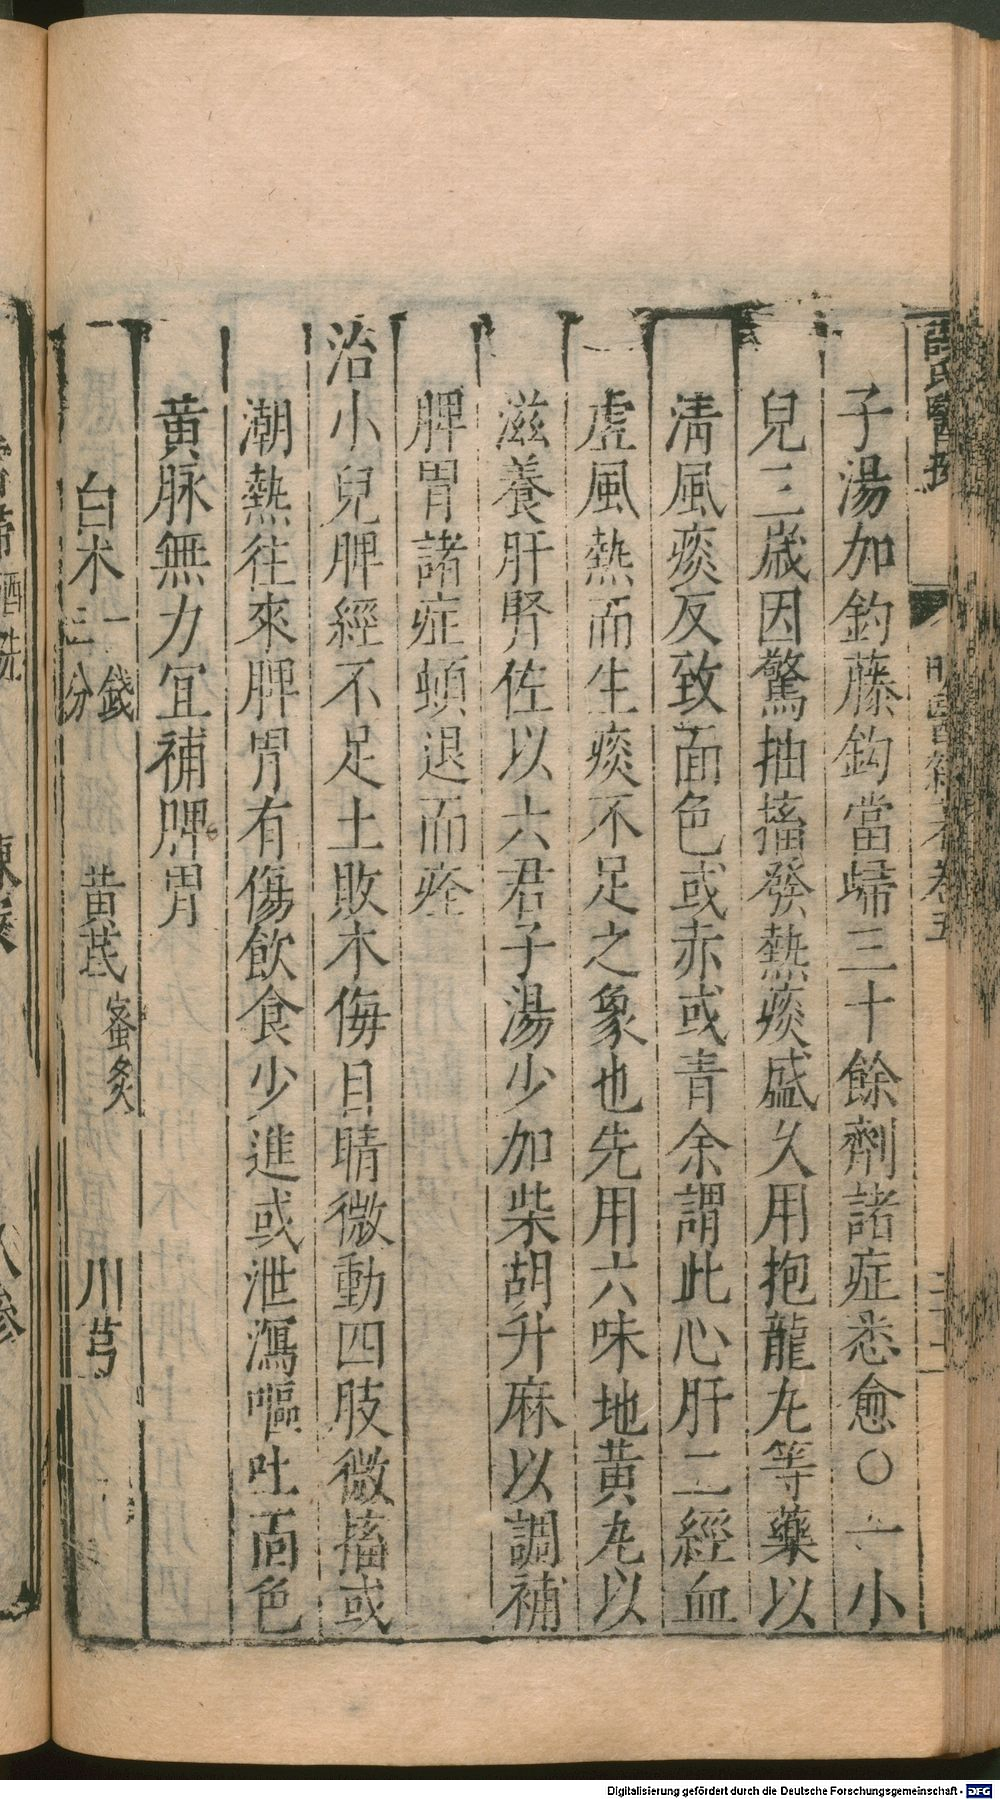 子湯加鈞藤鈎當歸三十餘劑諸症悉愈○一小
兒三歲因驚抽搐發熱痰盛久用抱龍丸等藥以
清風痰反致面色或赤或青余謂此心肝二經血
虛風熱而生痰不足之象也先用六味地黃丸以
滋養肝腎佐以六君子湯少加柴胡升麻以調補
脾胃諸症頓退而痊
治小兒脾經不足土敗木侮目睛微動四肢微搐或
潮熱往來脾胃有傷飲食少進或泄瀉嘔吐面色
黃脉無力宜補脾胃
白术一錢三分 黃芪蜜炙 川芎
Digitalisierung gefördert durch die Deutsche Forschungsgemeinschaft - DFG